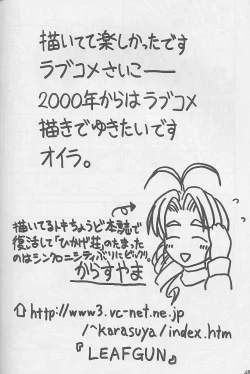 描いてて楽しかったです
ラブコメさいこ——
2000年からはラブコメ
描きでゆきたいです
オイラ。
描いてるトキちょうど本誌で
復活して「ひかげ荘」のたまった
のはシンクロニシティバリにビック。
からすやま
http://www3.vc-net.ne.jp
/~karasuya/index.htm
『LEAFGUN』